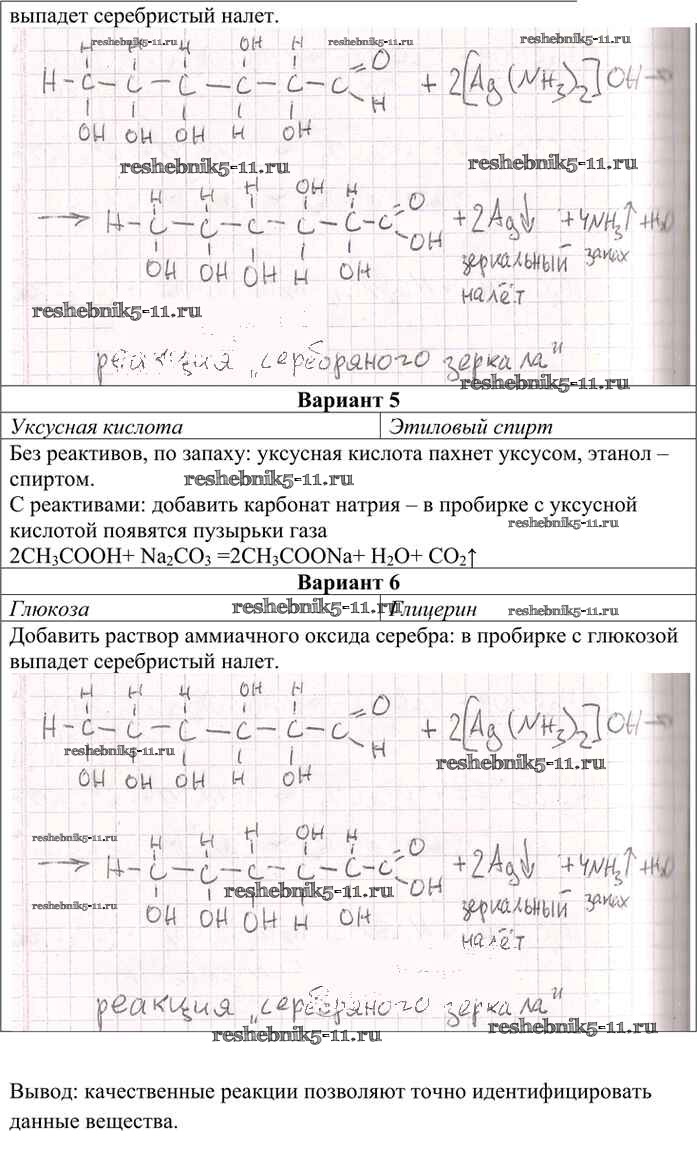 выпадет серебристый налет.
reshebnik5-11.ru reshebnik5-11.ru reshebnik5-11.ru
H H H OH H
H-C-C-C-C-C-C=O H + 2[Ag(NH₃)₂]OH→
OH OH OH H OH
reshebnik5-11.ru reshebnik5-11.ru
H H H OH H
→ H-C-C-C-C-C-C=O OH +2Ag↓ +4NH₃↑+H₂O
OH OH OH H OH зеркальный запах
налёт
reshebnik5-11.ru
реакция „серебряного зеркала"
reshebnik5-11.ru
Вариант 5
Уксусная кислота Этиловый спирт
Без реактивов, по запаху: уксусная кислота пахнет уксусом, этанол –
спиртом. reshebnik5-11.ru
С реактивами: добавить карбонат натрия – в пробирке с уксусной
кислотой появятся пузырьки газа reshebnik5-11.ru
2CH₃COOH+ Na₂CO₃ =2CH₃COONa+ H₂O+ CO₂↑
Вариант 6
Глюкоза reshebnik5-11.ru Глицерин reshebnik5-11.ru
Добавить раствор аммиачного оксида серебра: в пробирке с глюкозой
выпадет серебристый налет.
H H H OH H
H-C-C-C-C-C-C=O H + 2[Ag(NH₃)₂]OH→
reshebnik5-11.ru reshebnik5-11.ru
OH OH OH H OH
reshebnik5-11.ru
H H H OH H
→ H-C-C-C-C-C-C=O OH +2Ag↓ +4NH₃↑+H₂O
reshebnik5-11.ru
reshebnik5-11.ru OH OH OH H OH зеркальный запах
налёт
реакция „серебряного зеркала"
reshebnik5-11.ru reshebnik5-11.ru
Вывод: качественные реакции позволяют точно идентифицировать
данные вещества.